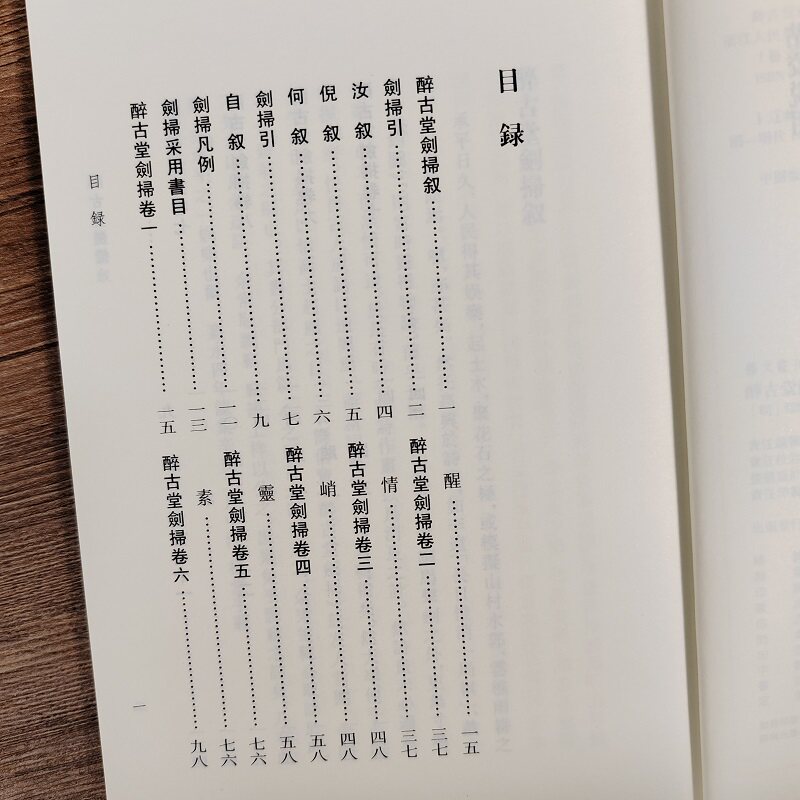 目 錄
醉古堂劍掃叙……一
劍掃引……二
汝 叙……四
倪 叙……五
何 叙……六
劍掃引……七
自 叙……九
劍掃凡例……一一
劍掃采用書目……一三
醉古堂劍掃卷一……一五
醒……一五
醉古堂劍掃卷二……三七
情……三七
醉古堂劍掃卷三……四八
峭……四八
醉古堂劍掃卷四……五八
靈……五八
醉古堂劍掃卷五……七六
素……七六
醉古堂劍掃卷六……九八
目 錄
一